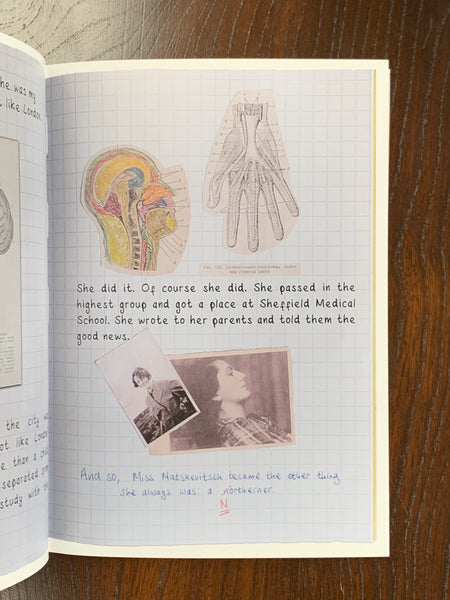 he was my
t like London.
She did it. Of course she did. She passed in the
highest group and got a place at Sheffield Medical
School. She wrote to her parents and told them the
good news.
the city was
ot like London
e than a chil
separated from
study with th
And so, Miss Matskevitsch became the other thing
she always was: a northerner.
N